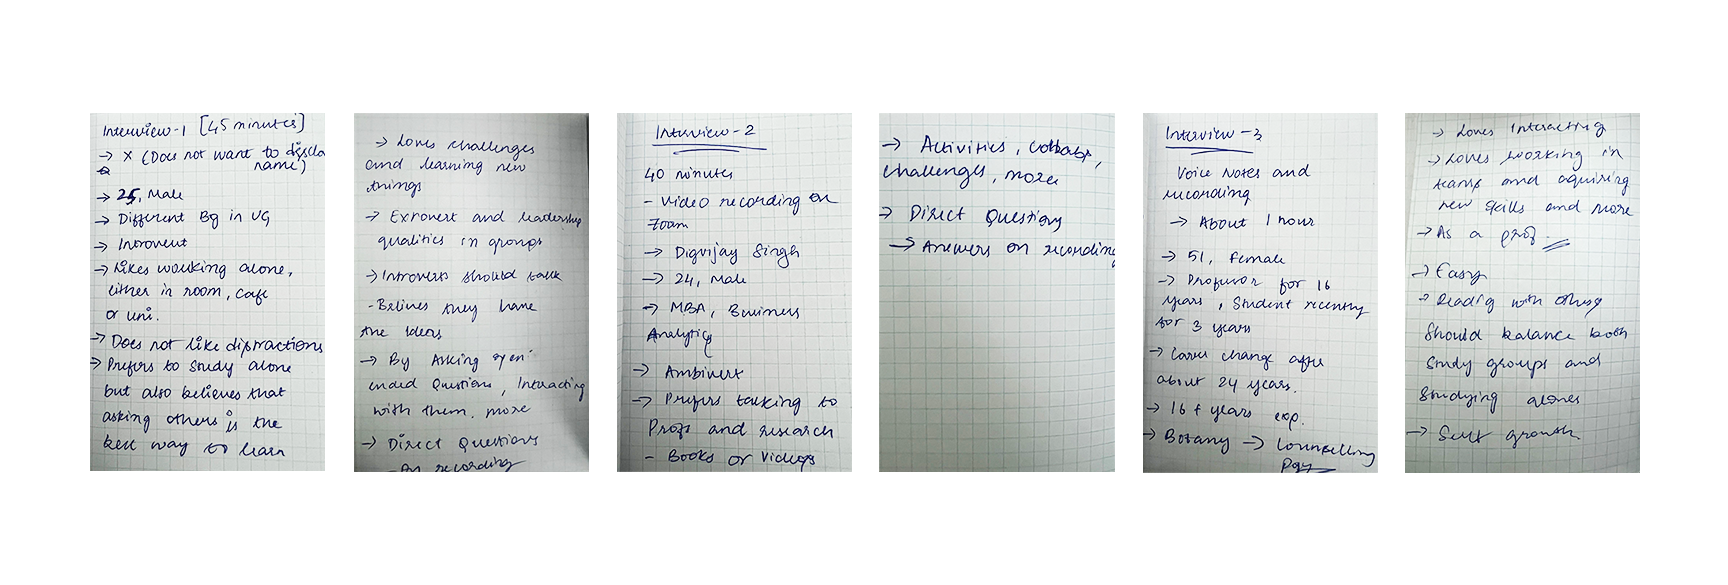 Interview-1 [45 minutes]
→ X (Does not want to disclo
name)
→ 25, Male
→ Different Bg in UG
→ Introvert
→ Likes working alone,
either in room, cafe
or uni.
→ Does not like distractions
→ Prefers to study alone
but also believes that
asking others is the
best way to learn
→ Loves challenges
and learning new
things
→ Exrovert and leadership
qualities in groups
→ Introverts should talk
- Belives they have
the Ideas
→ By Asking open-
ended Questions, Interacting
with them, more
→ Direct Questions
- An recording
Interview-2
40 minutes
- Video recording on
Zoom
→ Digvijay Singh
→ 24, Male
→ MBA, Business
Analytics
→ Ambivert
→ Prefers talking to
Profs and research
- Books or Videos
→ Activities, collabs,
challenges, more
→ Direct Questions
→ Answers on recording
Interview-3
Voice Notes and
recording
→ About 1 hour
→ 51, Female
→ Professor for 16
years, Student recently
for 3 years
→ Career change after
about 24 years.
→ 16+ years exp.
→ Botany → Counselling
Psy
→ Loves Interacting
→ Loves working in
teams and aquiring
new skills and more
→ As a prof.
→ Easy
→ Reading with others
Should balance both
Study groups and
Studying alones
→ Self growth